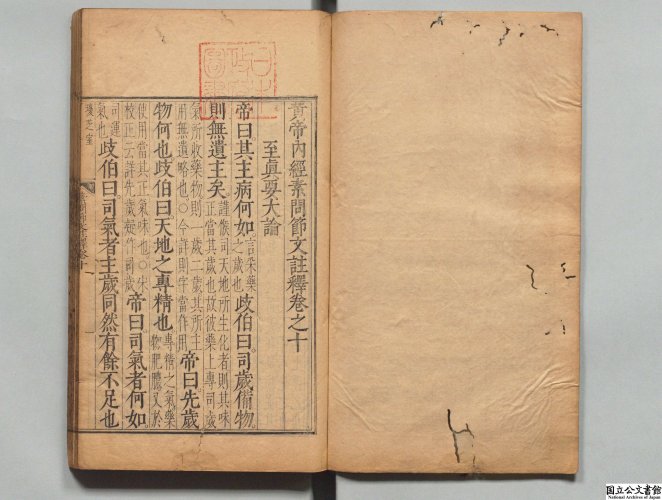 黃帝內經素問節文註釋卷之十
至眞要大論
帝曰其主病何如言采藥之歲也岐伯曰司歲備物
則無遺主矣謹候司天地所生化者則其味正當其歲也故彼藥工專司歲
氣所收藥物則一歲二歲其所主用無遺略也○今詳則字當作用帝曰先歲
物何也岐伯曰天地之專精也專精之氣藥物肥膿又於
使用當其正氣味也○宋校正云詳先歲疑作司歲帝曰司氣者何如
司運氣也岐伯曰司氣者主歲同然有餘不足也
瓊芝室
国立公文書館
National Archives of Japan